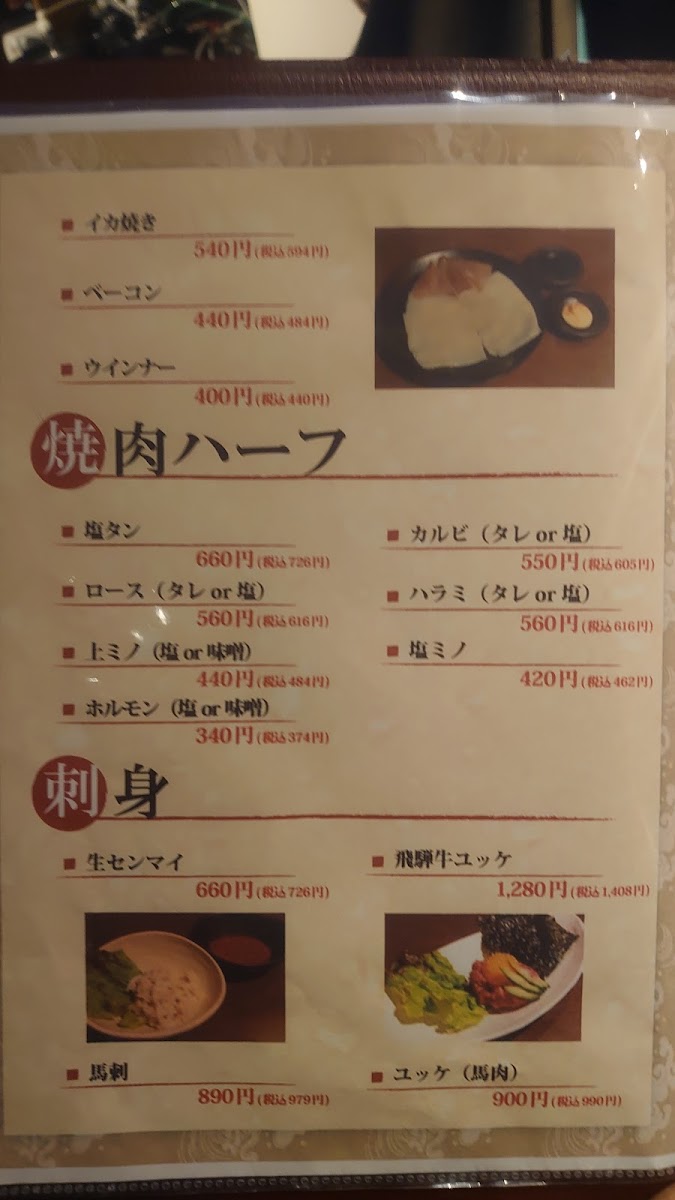 ■ イカ焼き
540円(税込594円)
■ ベーコン
440円(税込484円)
■ ウインナー
400円(税込440円)
焼肉ハーフ
■ 塩タン
660円(税込726円)
■ ロース（タレ or 塩）
560円(税込616円)
■ 上ミノ（塩 or 味噌）
440円(税込484円)
■ ホルモン（塩 or 味噌）
340円(税込374円)
■ カルビ（タレ or 塩）
550円(税込605円)
■ ハラミ（タレ or 塩）
560円(税込616円)
■ 塩ミノ
420円(税込462円)
刺身
■ 生センマイ
660円(税込726円)
■ 飛騨牛ユッケ
1,280円(税込1,408円)
■ 馬刺
890円(税込979円)
■ ユッケ（馬肉）
900円(税込990円)